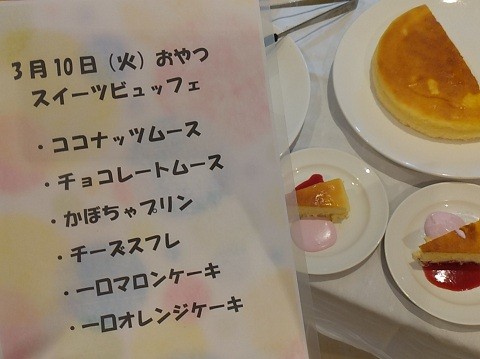 3月10日(火)おやつ
スイーツビュッフェ
・ココナッツムース
・チョコレートムース
・かぼちゃプリン
・チーズスフレ
・一口マロンケーキ
・一口オレンジケーキ